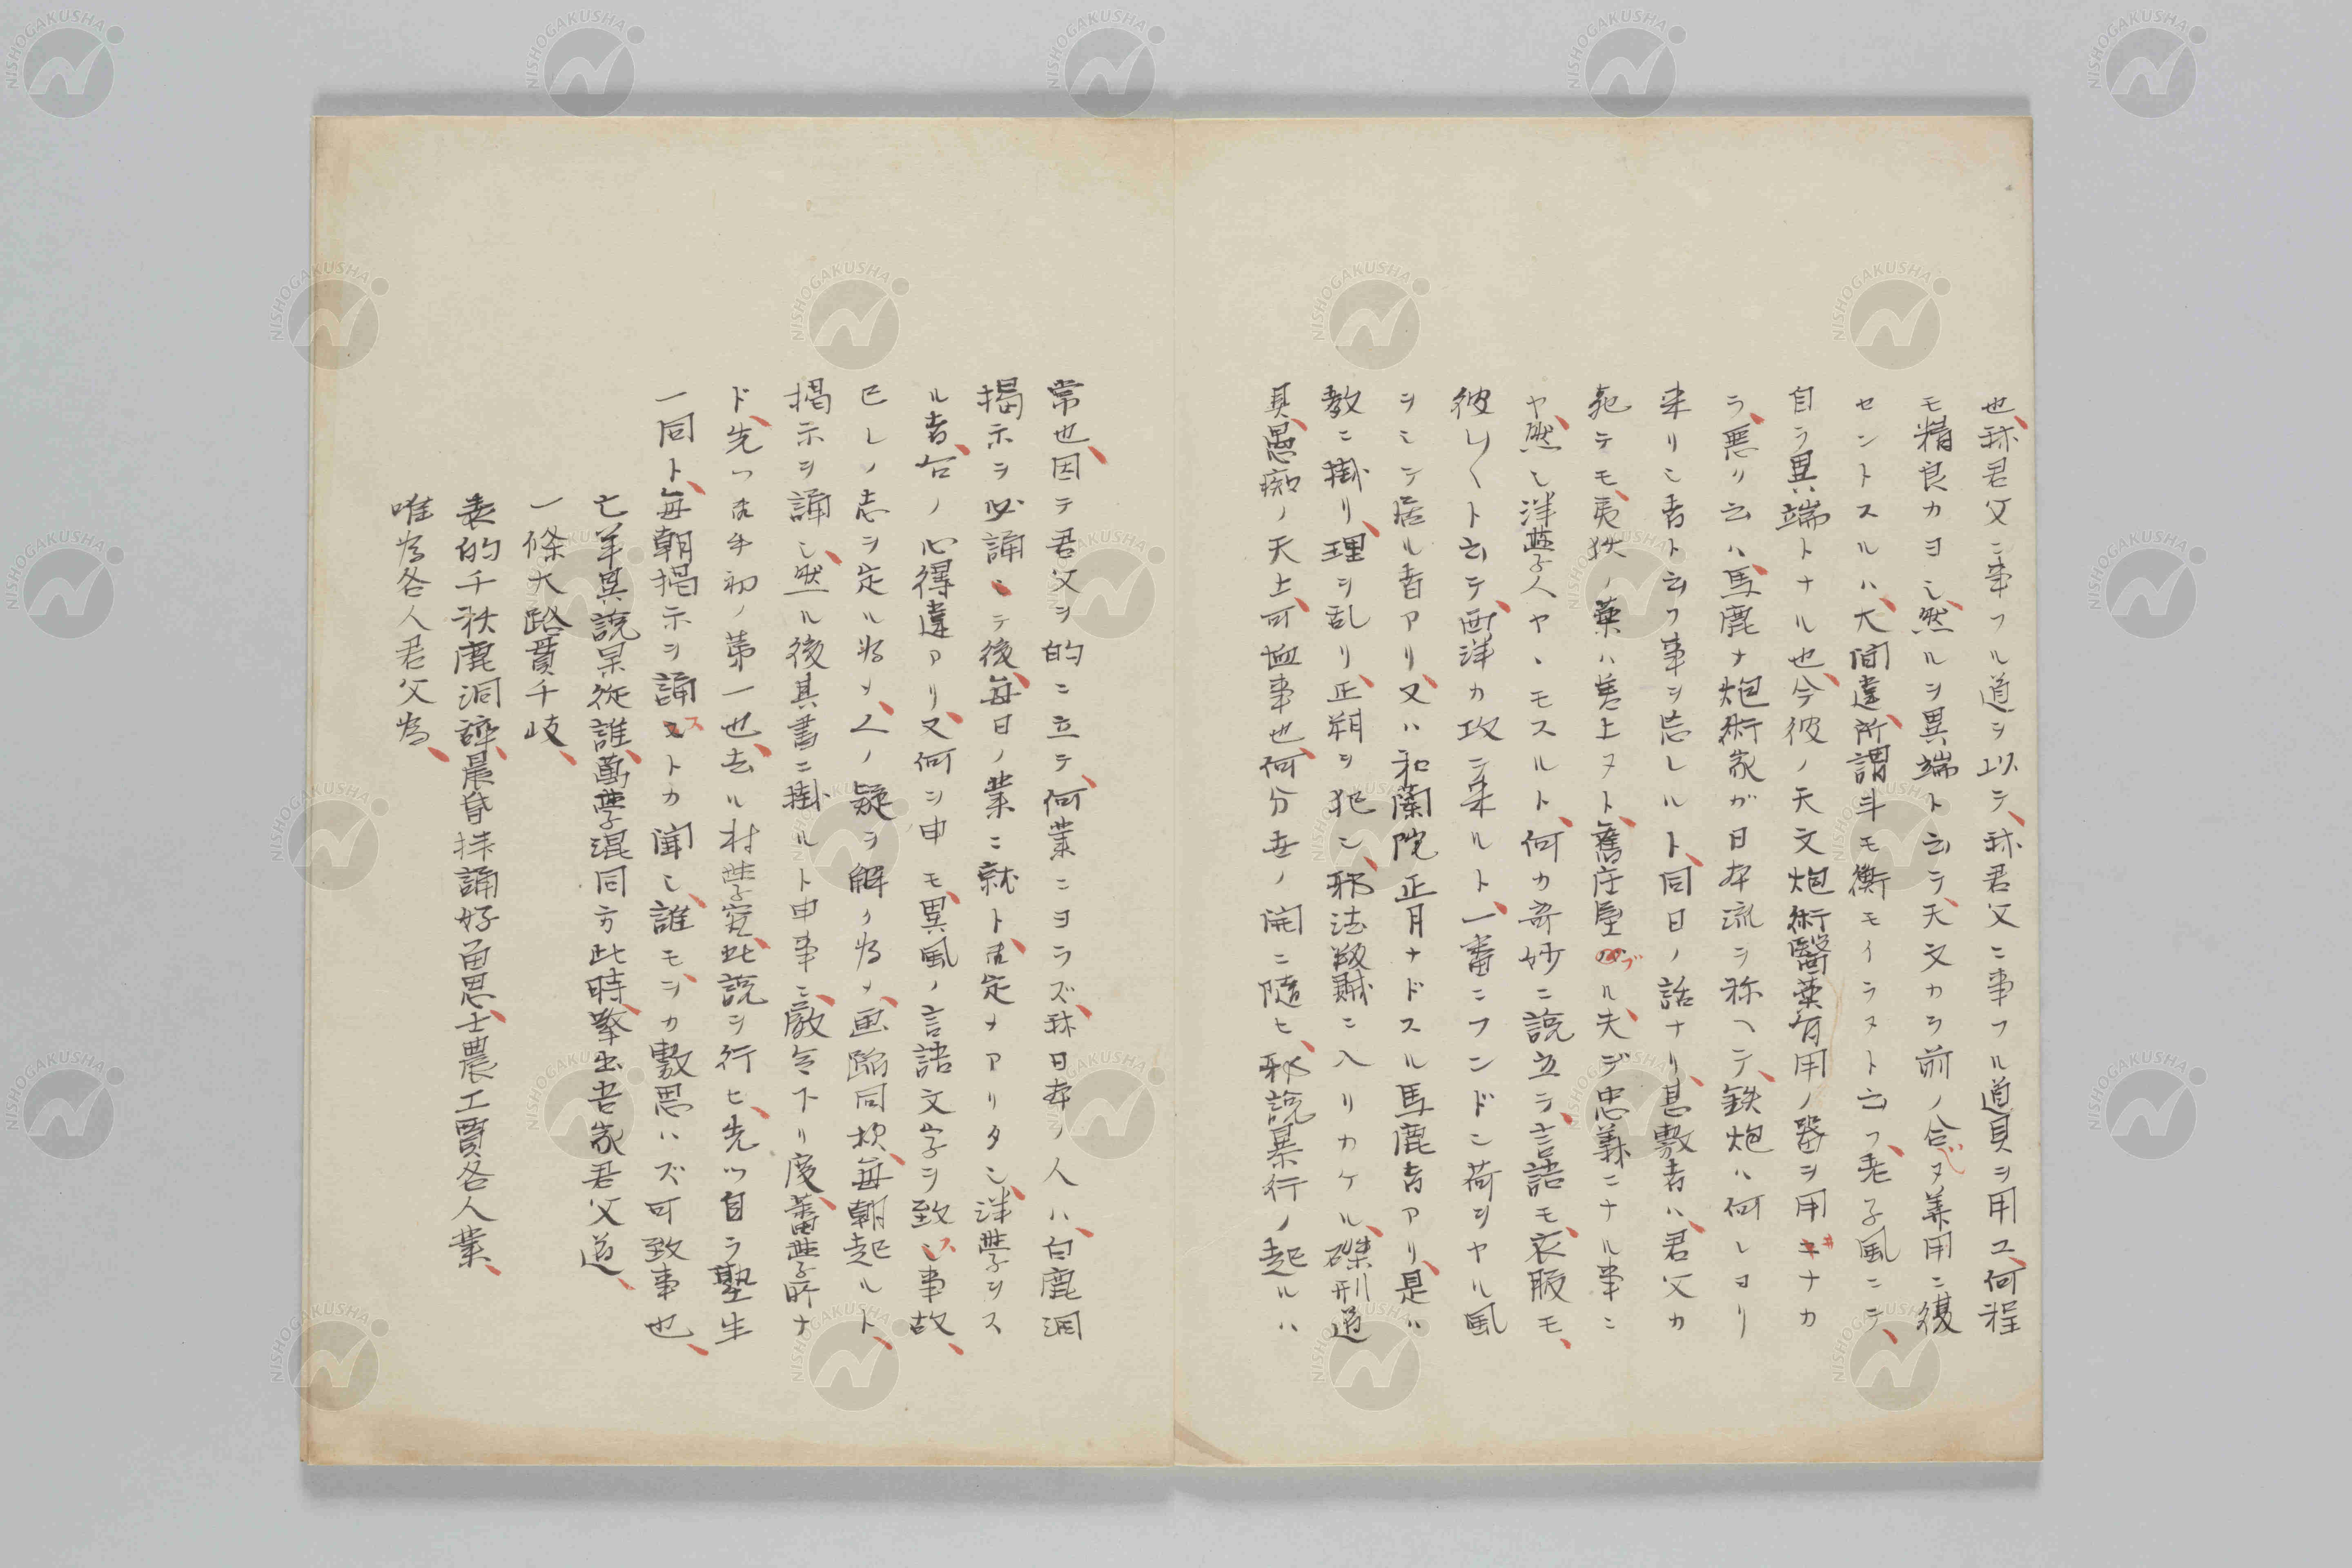 也我君父ニ事フル道ヲ以テ我君父ニ事フル道具ヲ用ユ何程
モ精良カヨシ然ルヲ異端ト云テ天文カラ前ノ合ヌ美用ニ復
セントスルハ大間違所謂斗モ衡モイラヌト云フ老子風ニテ
自ラ異端トナル也今彼ノ天文炮術醫薬有用ノ器ヲ用キナカ
ラ悪リ云ハ馬鹿ナ炮術家ガ日本流ヲ称ヘテ鉄炮ハ何レヨリ
来リシ者ト云フ事ヲ忘レルト同日ノ話ナリ甚敷者ハ君父カ
死テモ夷狄ノ薬ハ差上ヌト舊庄屋ブル夫デ忠義ニナル事ニ
ヤ然シ洋学人ヤヽモスルト何カ奇妙ニ説立ラ言語モ衣服モ
彼リ〱ト云テ西洋カ攻ニ来ルト一番ニフンドシ荷ヲヤル風
ヲシテ居ル者アリ又ハ和蘭院正月ナドスル馬鹿者アリ是ハ
教ニ掛リ理ヲ乱リ正朔ヲ犯シ邪法叛賊ニ入リカケル磔刑道
具愚痴ノ天上可恤事也何分世ノ開ニ隨ヒ邪説暴行ノ起ルハ
常也因テ君父ヲ的ニ立テ何業ニヨラズ我日本ノ人ハ白鹿洞
掲示ヲ必誦シテ後毎日ノ業ニ就ト国定メアリタシ洋学ヲス
ル者右ノ心得違アリ又何ヲ申モ異風ノ言語文字ヲ致ス事故
已レノ志ヲ定ル為メ人ノ疑ヲ解ク為メ画踏同校毎朝起ルト
掲示ヲ誦シ然ル後其書ニ掛ルト申事ニ厳令下リ度蕃学所ナ
ド先ツ手初ノ第一也去ル村学究此説ヲ行ヒ先ツ自ラ塾生
一同ト毎朝掲示ヲ誦ストカ聞シ誰モシカ敷思ハズ可致事也
亡羊異説果從誰萬学混同方此時撃出吾家君父道
一條大路貫千岐
表的千秋鹿洞辭晨昏拝誦好面思士農工賈各人業
唯為各人君父為